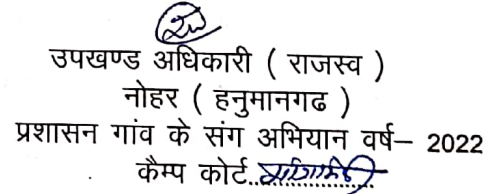 उपखण्ड अधिकारी ( राजस्व )
नोहर ( हनुमानगढ )
प्रशासन गांव के संग अभियान वर्ष– 2022
कैम्प कोर्ट..